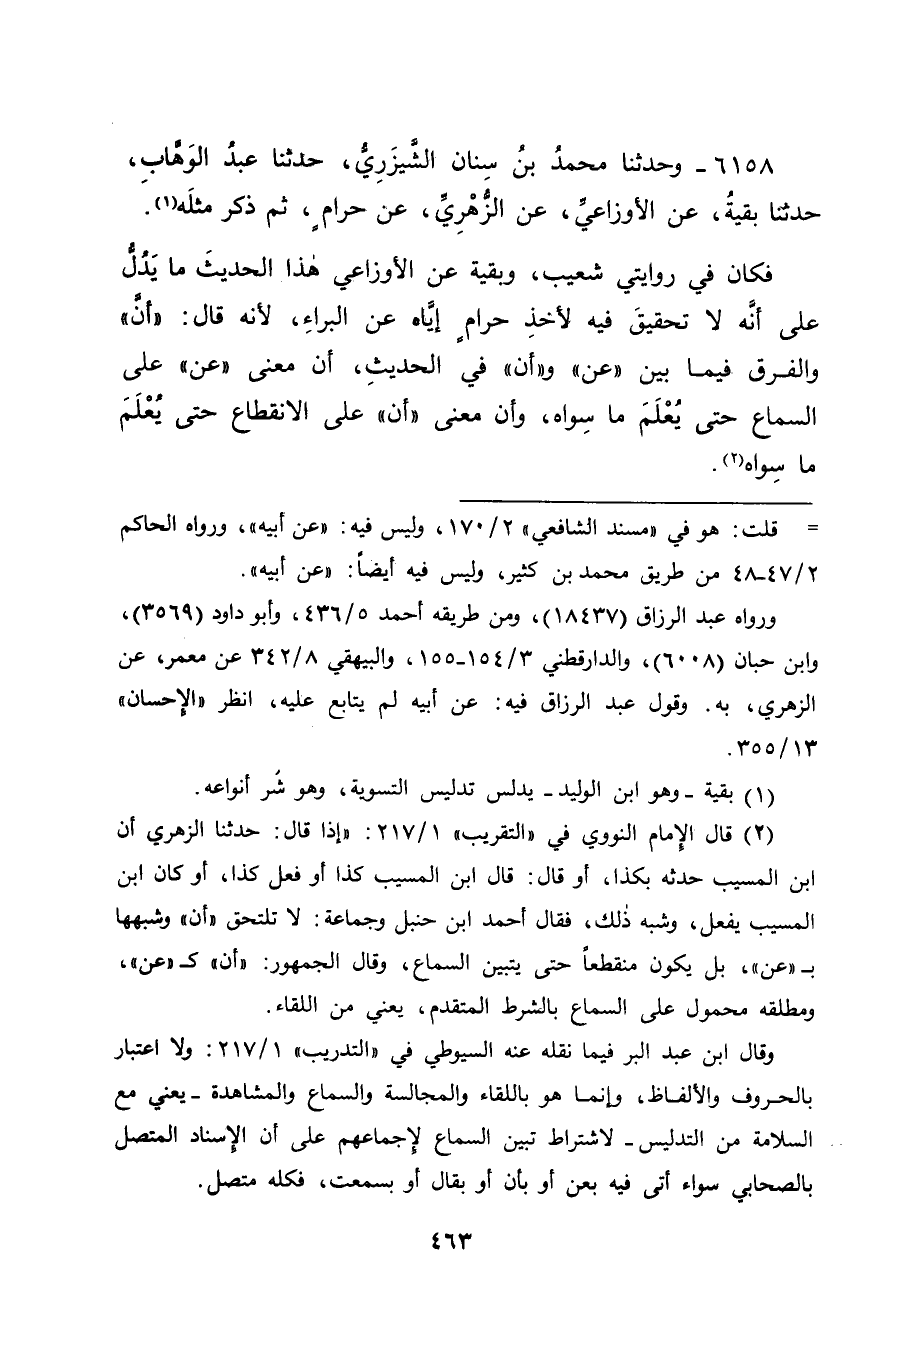 ٦١٥٨ ـ وحدثنا محمدُ بنُ سِنان الشَّيزَرِيُّ، حدثنا عبدُ الوَهَّابِ،
حدثنا بقيةُ، عن الأوزاعيِّ، عن الزُّهْرِيِّ، عن حرامٍ، ثم ذكر مثلَه(١).
فكان في روايتي شعيب، وبقية عن الأوزاعي هٰذا الحديثَ ما يَدُلُّ
على أنَّه لا تحقيقَ فيه لأخذِ حرامٍ إيَّاه عن البراءِ، لأنه قال: «أنَّ»
والفرق فيما بين «عن» و«أن» في الحديثِ، أن معنى «عن» على
السماع حتى يُعْلَمَ ما سِواه، وأن معنى «أن» على الانقطاع حتى يُعْلَمَ
ما سِواه(٢).
= قلت: هو في «مسند الشافعي» ١٧٠/٢، وليس فيه: «عن أبيه»، ورواه الحاكم
٤٧/٢ـ٤٨ من طريق محمد بن كثير، وليس فيه أيضاً: «عن أبيه».
ورواه عبد الرزاق (١٨٤٣٧)، ومن طريقه أحمد ٤٣٦/٥، وأبو داود (٣٥٦٩)،
وابن حبان (٦٠٠٨)، والدارقطني ١٥٤/٣ـ١٥٥، والبيهقي ٣٤٢/٨ عن معمر، عن
الزهري، به. وقول عبد الرزاق فيه: عن أبيه لم يتابع عليه، انظر «الإحسان»
٣٥٥/١٣.
(١) بقية ـ وهو ابن الوليد ـ يدلس تدليس التسوية، وهو شُر أنواعه.
(٢) قال الإمام النووي في «التقريب» ٢١٧/١: «إذا قال: حدثنا الزهري أن
ابن المسيب حدثه بكذا، أو قال: قال ابن المسيب كذا أو فعل كذا، أو كان ابن
المسيب يفعل، وشبه ذٰلك، فقال أحمد ابن حنبل وجماعة: لا تلتحق «أن» وشبهها
بـ «عن»، بل يكون منقطعاً حتى يتبين السماع، وقال الجمهور: «أن» كـ «عن»،
ومطلقه محمول على السماع بالشرط المتقدم، يعني من اللقاء.
وقال ابن عبد البر فيما نقله عنه السيوطي في «التدريب» ٢١٧/١: ولا اعتبار
بالحروف والألفاظ، وإنما هو باللقاء والمجالسة والسماع والمشاهدة ـ يعني مع
السلامة من التدليس ـ لاشتراط تبين السماع لإجماعهم على أن الإسناد المتصل
بالصحابي سواء أتى فيه بعن أو بأن أو بقال أو بسمعت، فكله متصل.
٤٦٣